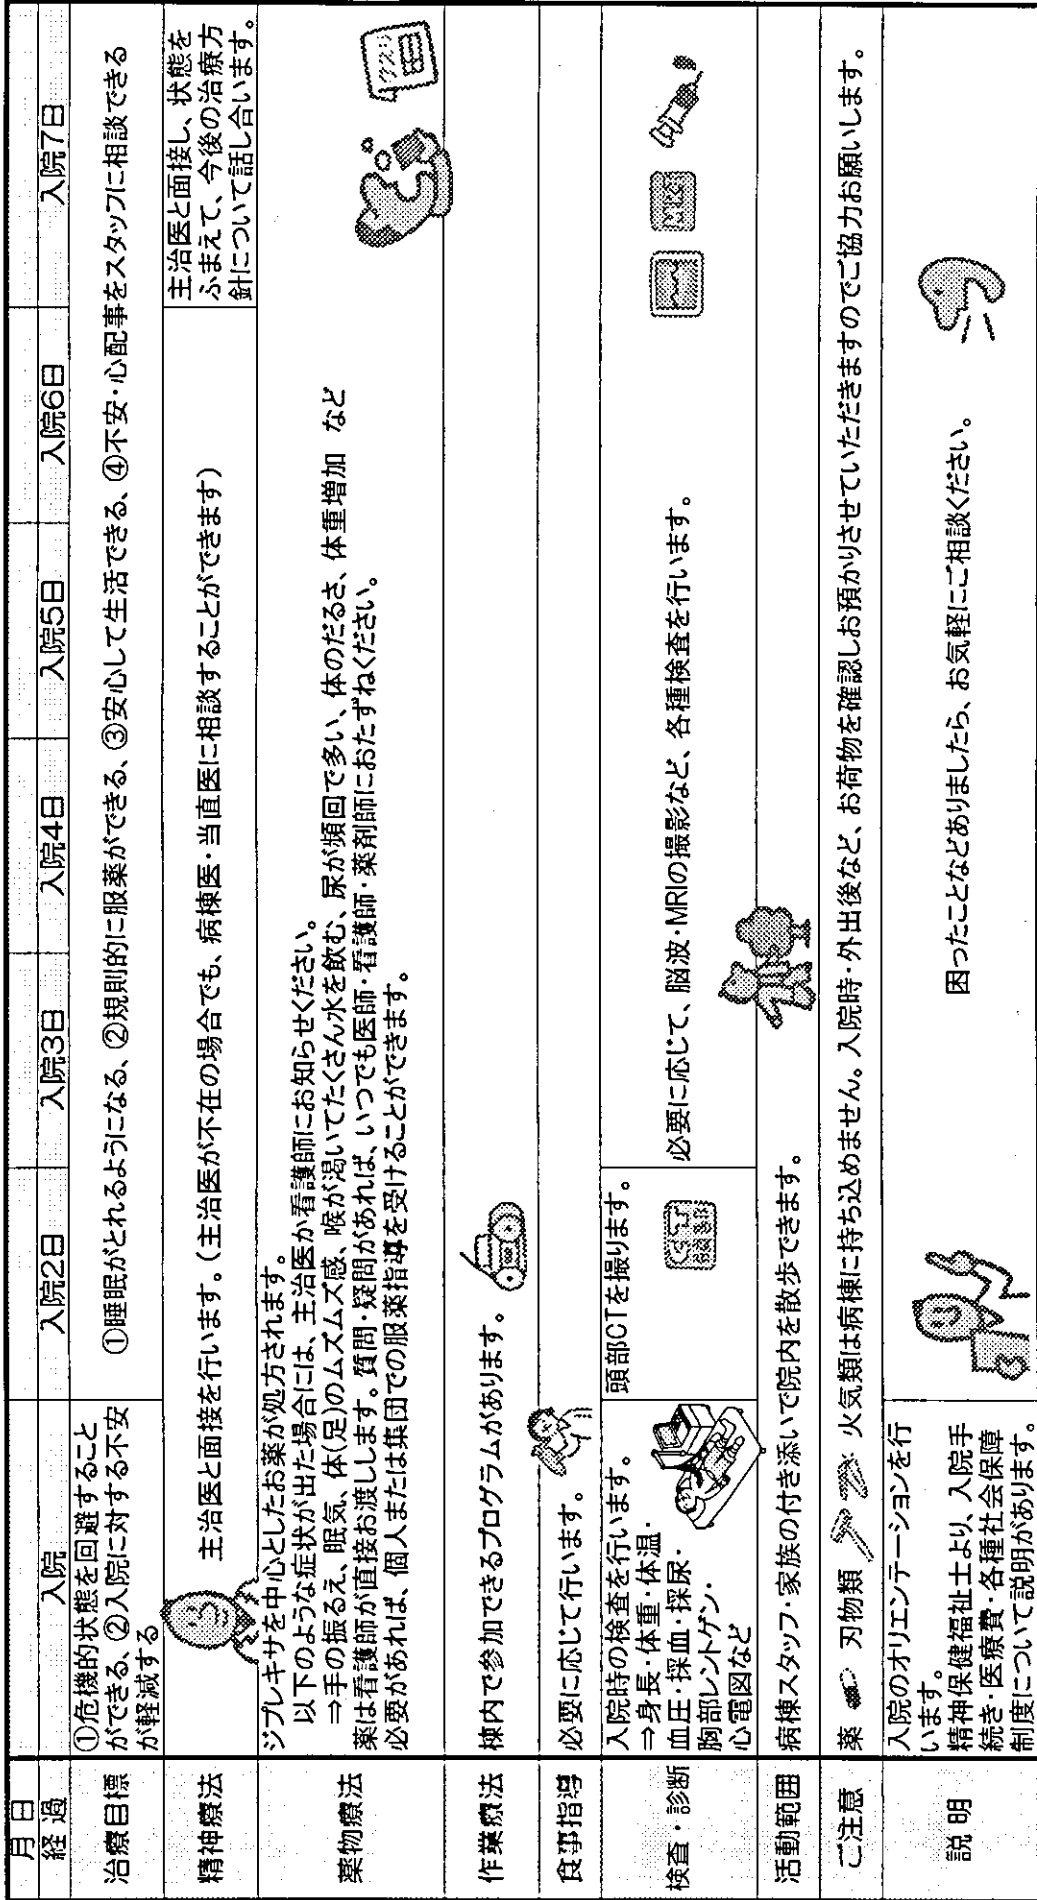 月日
経過 入院 入院2日 入院3日 入院4日 入院5日 入院6日 入院7日
治療目標
①危機的状態を回避すること
ができる、②入院に対する不安
が軽減する
①睡眠がとれるようになる、②規則的に服薬ができる、③安心して生活できる、④不安・心配事をスタッフに相談できる
精神療法
主治医と面接を行います。(主治医が不在の場合でも、病棟医・当直医に相談することができます)
主治医と面接し、状態を
ふまえて、今後の治療方
針について話し合います。
薬物療法
ジプレキサを中心としたお薬が処方されます。
以下のような症状が出た場合には、主治医か看護師にお知らせください。
⇒手の振るえ、眠気、体(足)のムズムズ感、喉が渇いてたくさん水を飲む、尿が頻回で多い、体のだるさ、体重増加 など
薬は看護師が直接お渡しします。質問・疑問があれば、いつでも医師・看護師・薬剤師におたずねください。
必要があれば、個人または集団での服薬指導を受けることができます。
クスリ
作業療法
棟内で参加できるプログラムがあります。
食事指導
必要に応じて行います。
検査・診断
入院時の検査を行います。
⇒身長・体重・体温・
血圧・採血・採尿・
胸部レントゲン・
心電図など
頭部CTを撮ります。
必要に応じて、脳波・MRIの撮影など、各種検査を行います。
活動範囲
病棟スタッフ・家族の付き添いで院内を散歩できます。
ご注意
薬 刃物類 火気類は病棟に持ち込めません。入院時・外出後など、お荷物を確認しお預かりさせていただきますのでご協力お願いします。
説明
入院のオリエンテーションを行
います。
精神保健福祉士より、入院手
続き・医療費・各種社会保障
制度について説明があります。
困ったことなどありましたら、お気軽にご相談ください。